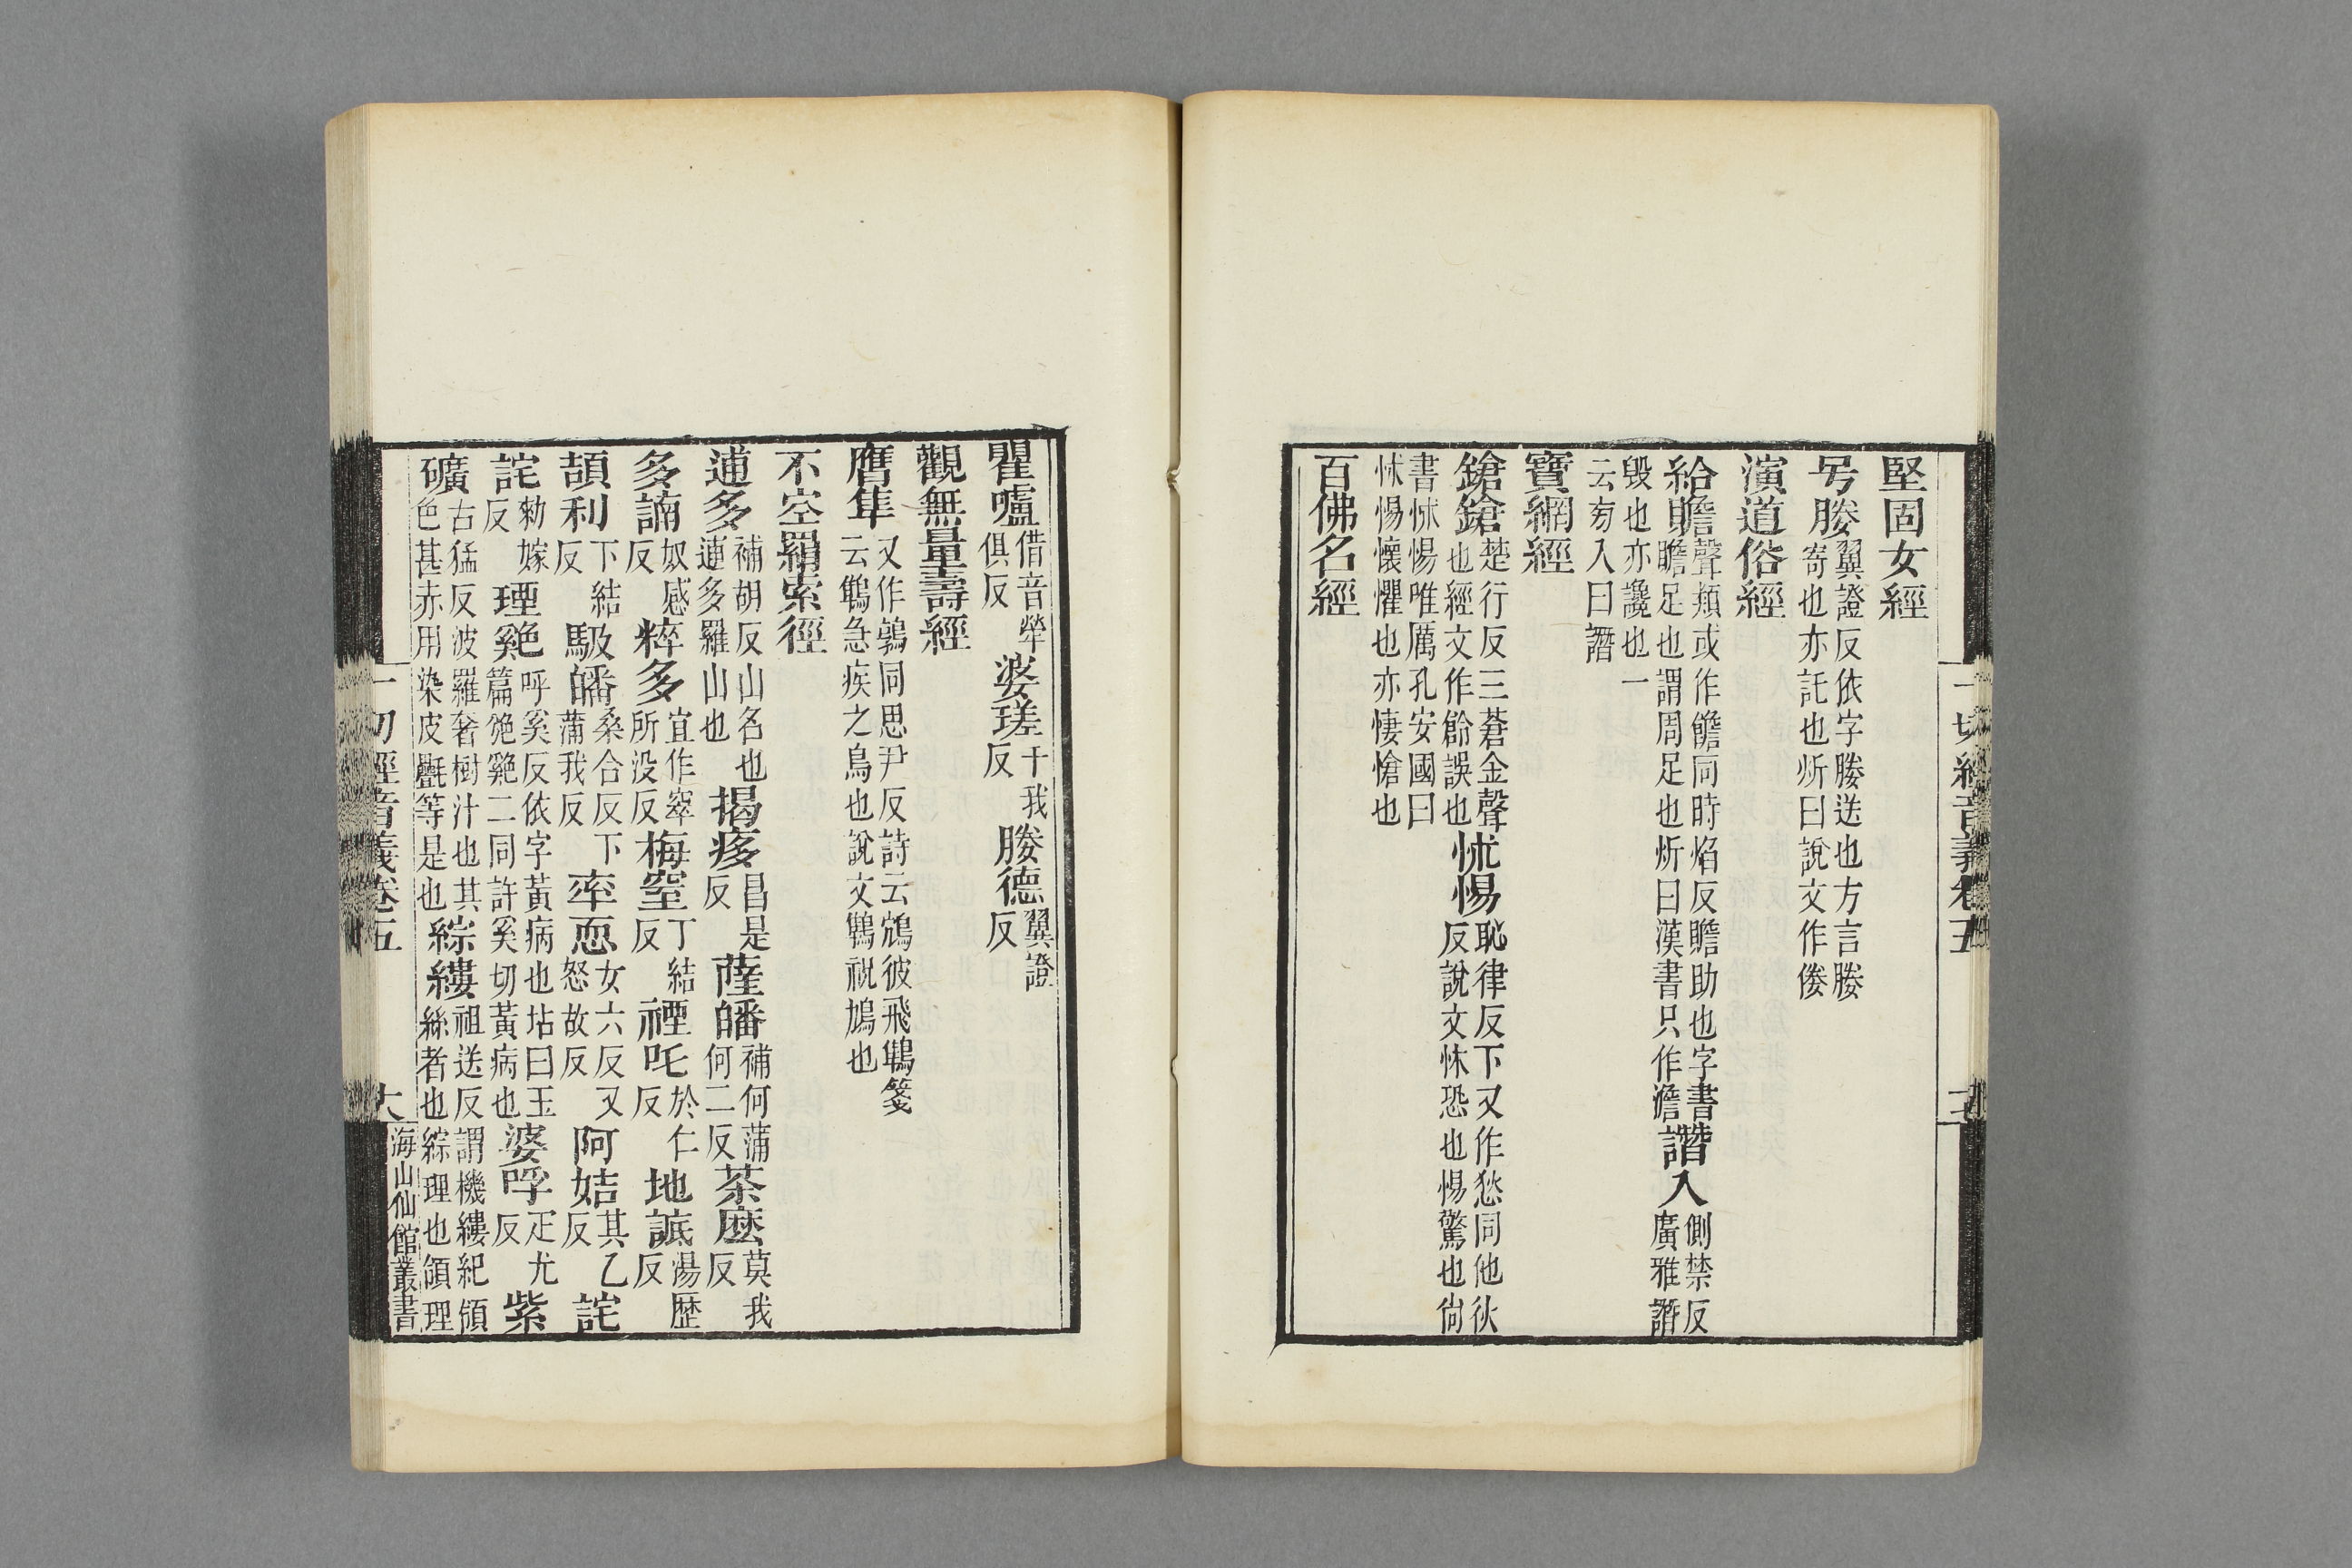 堅固女經
号媵翼證反依字媵送也方言媵寄也亦託也炘曰說文作㑞
演道俗經
給贍聲類或作饍同時焰反贍助也字書贍足也謂周足也炘曰漢書只作澹譖入側禁反廣雅譖
毀也亦讒也一云旁入曰譖
寶網經
鎗鎗楚行反三蒼金聲也經文作䤾誤也怵惕恥律反下又作愁同他狄反說文怵恐也惕驚也尙
書怵惕唯厲孔安國曰怵惕懷懼也亦悽愴也
百佛名經
一切經音義卷五
瞿嚧借音犖俱反婆瑳千我反媵德翼證反
觀無量壽經
鷹隼又作鶽同思尹反詩云鴥彼飛鶽箋云鶽急疾之鳥也說文鶽祝鳩也
不空羂索徑
逋多補胡反山名也逋多羅山也揭痑昌是反薩皤補何蒲何二反茶麽莫我反
多諵奴感反粹多宜作窣所没反梅窒丁結反䄄吒於仁反地詆湯歷反
頡利下結反馺皤桑合反下蒲我反率恧女六反又怒故反阿姞其乙反詫
詫勑嫁反堙㜎呼奚反依字黃病也坫曰玉篇㿟㜎二同許奚切黃病也婆呼疋尤反紫
礦古猛反波羅奢樹汁也其色甚赤用染皮氎等是也綜縷祖送反謂機縷紀領絲者也綜理也領理
一切經音義卷五
六
海山仙館叢書